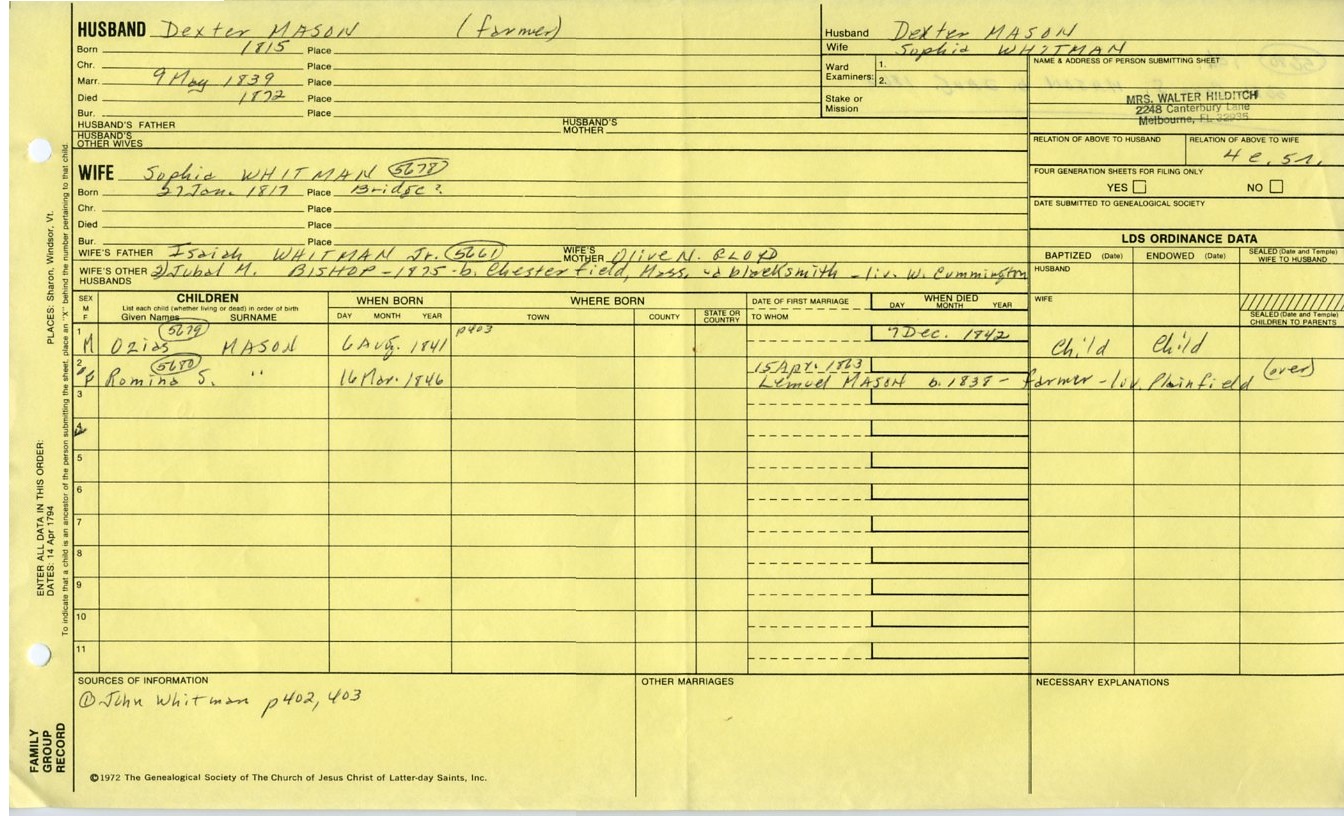 HUSBAND Dexter MASON (farmer)
Born 1815 Place
Chr. Place
Marr. 9 May 1839 Place
Died 1872 Place
Bur. Place
HUSBAND'S FATHER HUSBAND'S MOTHER
HUSBAND'S OTHER WIVES
Husband Dexter MASON
Wife Sophia WHITMAN
Ward Examiners: 1.
2.
Stake or Mission
NAME & ADDRESS OF PERSON SUBMITTING SHEET
MRS. WALTER HILDITCH
2248 Canterbury Lane
Melbourne, FL 32935
RELATION OF ABOVE TO HUSBAND RELATION OF ABOVE TO WIFE
FOUR GENERATION SHEETS FOR FILING ONLY
YES NO
DATE SUBMITTED TO GENEALOGICAL SOCIETY
WIFE Sophia WHITMAN 5678
Born 27 Jan. 1817 Place Bridge?
Chr. Place
Died Place
Bur. Place
WIFE'S FATHER Isaiah WHITMAN Jr. 5661 WIFE'S MOTHER Olive N.
WIFE'S OTHER HUSBANDS 2) Jubal M. BISHOP - 1875 - b. Chesterfield, Mass, a blacksmith - liv. W. Cummington
LDS ORDINANCE DATA
BAPTIZED (Date) ENDOWED (Date) SEALED (Date and Temple) WIFE TO HUSBAND
HUSBAND
WIFE
SEALED (Date and Temple) CHILDREN TO PARENTS
SEX M F
CHILDREN
List each child (whether living or dead) in order of birth
Given Names SURNAME
WHEN BORN
DAY MONTH YEAR
WHERE BORN
TOWN COUNTY STATE OR COUNTRY
DATE OF FIRST MARRIAGE
TO WHOM
WHEN DIED
DAY MONTH YEAR
1 M 5679 Ozias MASON 6 Aug. 1841 p403 7 Dec. 1842 Child Child
2 F 5680 Romina S. " 16 Mar. 1846 15 Apr. 1863
Lemuel MASON b. 1838 - farmer - liv. Plainfield (over)
3
4
5
6
7
8
9
10
11
SOURCES OF INFORMATION
① John Whitman p402, 403
OTHER MARRIAGES
NECESSARY EXPLANATIONS
©1972 The Genealogical Society of The Church of Jesus Christ of Latter-day Saints, Inc.
FAMILY GROUP RECORD
ENTER ALL DATA IN THIS ORDER:
DATES: 14 Apr 1794
PLACES: Sharon, Windsor, Vt.
To indicate that a child is an ancestor of the person submitting the sheet, place an "X" behind the number pertaining to that child.